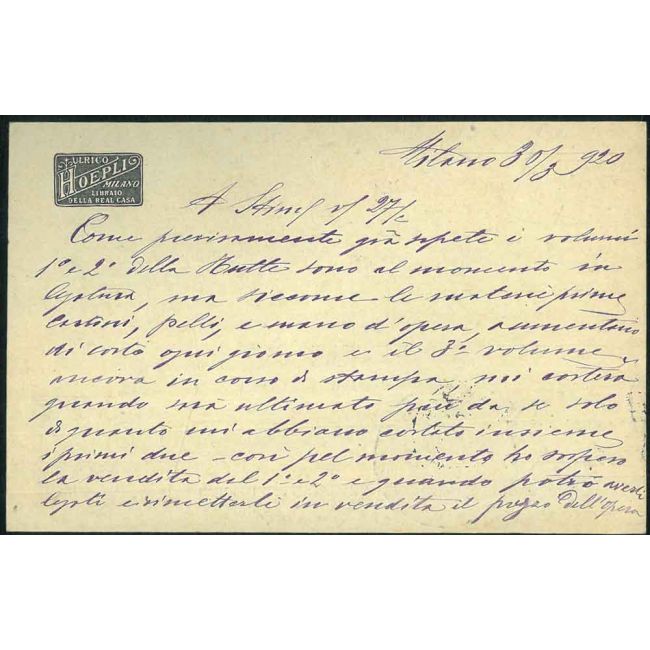 ULRICO
HOEPLI
MILANO
LIBRAIO
DELLA REAL CASA
Milano 30/3 920
A Stim/ v/ 27/c
Come previamente già sapete i volumi
1° e 2° della Hutte sono al momento in
legatura, ma siccome le materie prime
cartoni, pelli, e mano d'opera, aumentano
di costo ogni giorno e il 3° volume,
ancora in corso di stampa, mi costerà
quando sarà ultimato più da se solo
di quanto mi abbiano costato insieme
i primi due – così pel momento ho sospeso
la vendita del 1° e 2° e quando potrò averli
legati e rimetterli in vendita il prezzo dell'opera